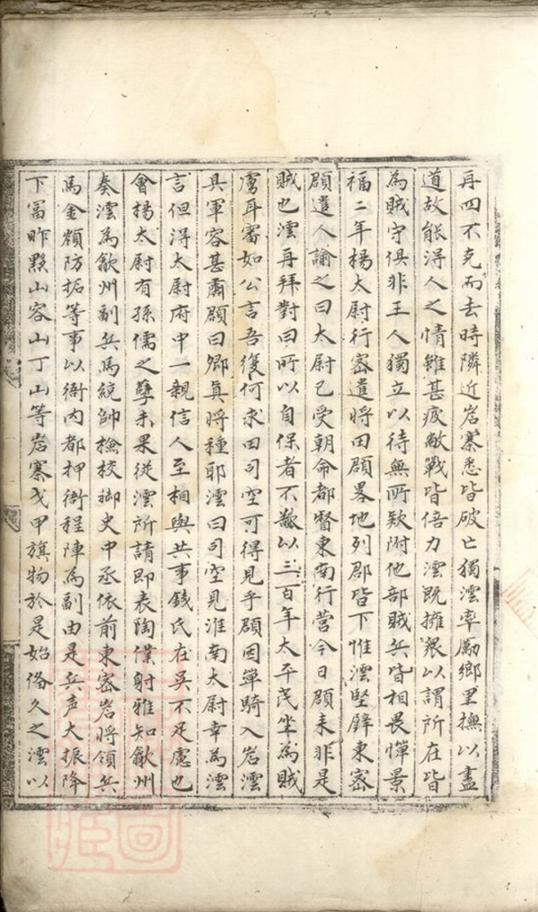 再四不克而去時隣近岩寨悉皆破亡獨澐率勵鄉里撫以盡
道故能得人之情雖甚疲敝戰皆倍力澐既擁衆以謂所在皆
為賊守俱非王人獨立以待無所欵附他部賊兵皆相畏憚景
福二年楊太尉行密遣將田頵畧地列郡皆下惟澐堅壁東密
頵遣人諭之曰太尉已受朝命都督東南行營今日頵来非是
賊也澐再拜對曰所以自保者不欲以三百年太平民坐為賊
虜耳審如公言吾復何求田司空可得見乎頵因單騎入岩澐
具軍容甚肅頵曰卿真將種耶澐曰司空見淮南大尉幸為澐
言但得太尉府中一親信人至相與共事錢氏在吳不足慮也
會楊太尉有孫儒之孽未果從澐所請即表陶僕射雅知歙州
奏澐為歙州副兵馬統帥檢校御史中丞依前東密岩將領兵
馬金額防拓等事以衙内都押衙程陣為副由是兵声大振降
下冨昨㸃山容山丁山等岩寨戈甲旗物於是始俻久之澐以